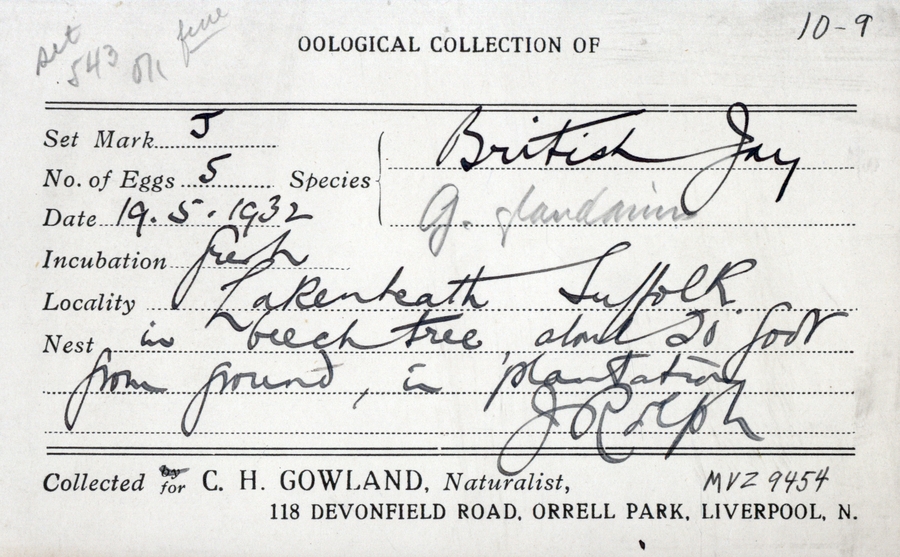 set
543 ok fine
10-9
OOLOGICAL COLLECTION OF
Set Mark J
British Jay
No. of Eggs 5 Species
Date 19.5.1932
G. glandarius
Incubation fresh
Locality Lakenheath Suffolk
Nest in beech tree about 20 foot
from ground, in plantation
J Rolph
Collected by for C. H. GOWLAND, Naturalist,
MVZ 9454
118 DEVONFIELD ROAD, ORRELL PARK, LIVERPOOL, N.